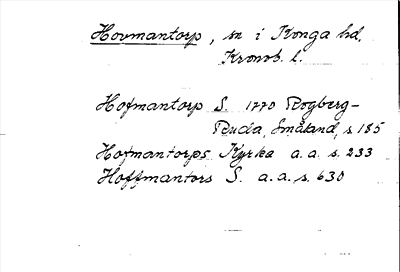 Hovmantorp, sn i Konga hd.
Kronob. l.
Hofmantorp S. 1770 Rogberg-
Ruda, Småland, s 185
Hofmantorps Kyrka a.a. s. 233
Hoffmantors S. a.a. s. 630